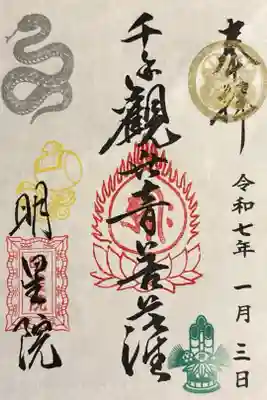 奉拝
令和七年 一月三日
千手観世音菩薩
明星院